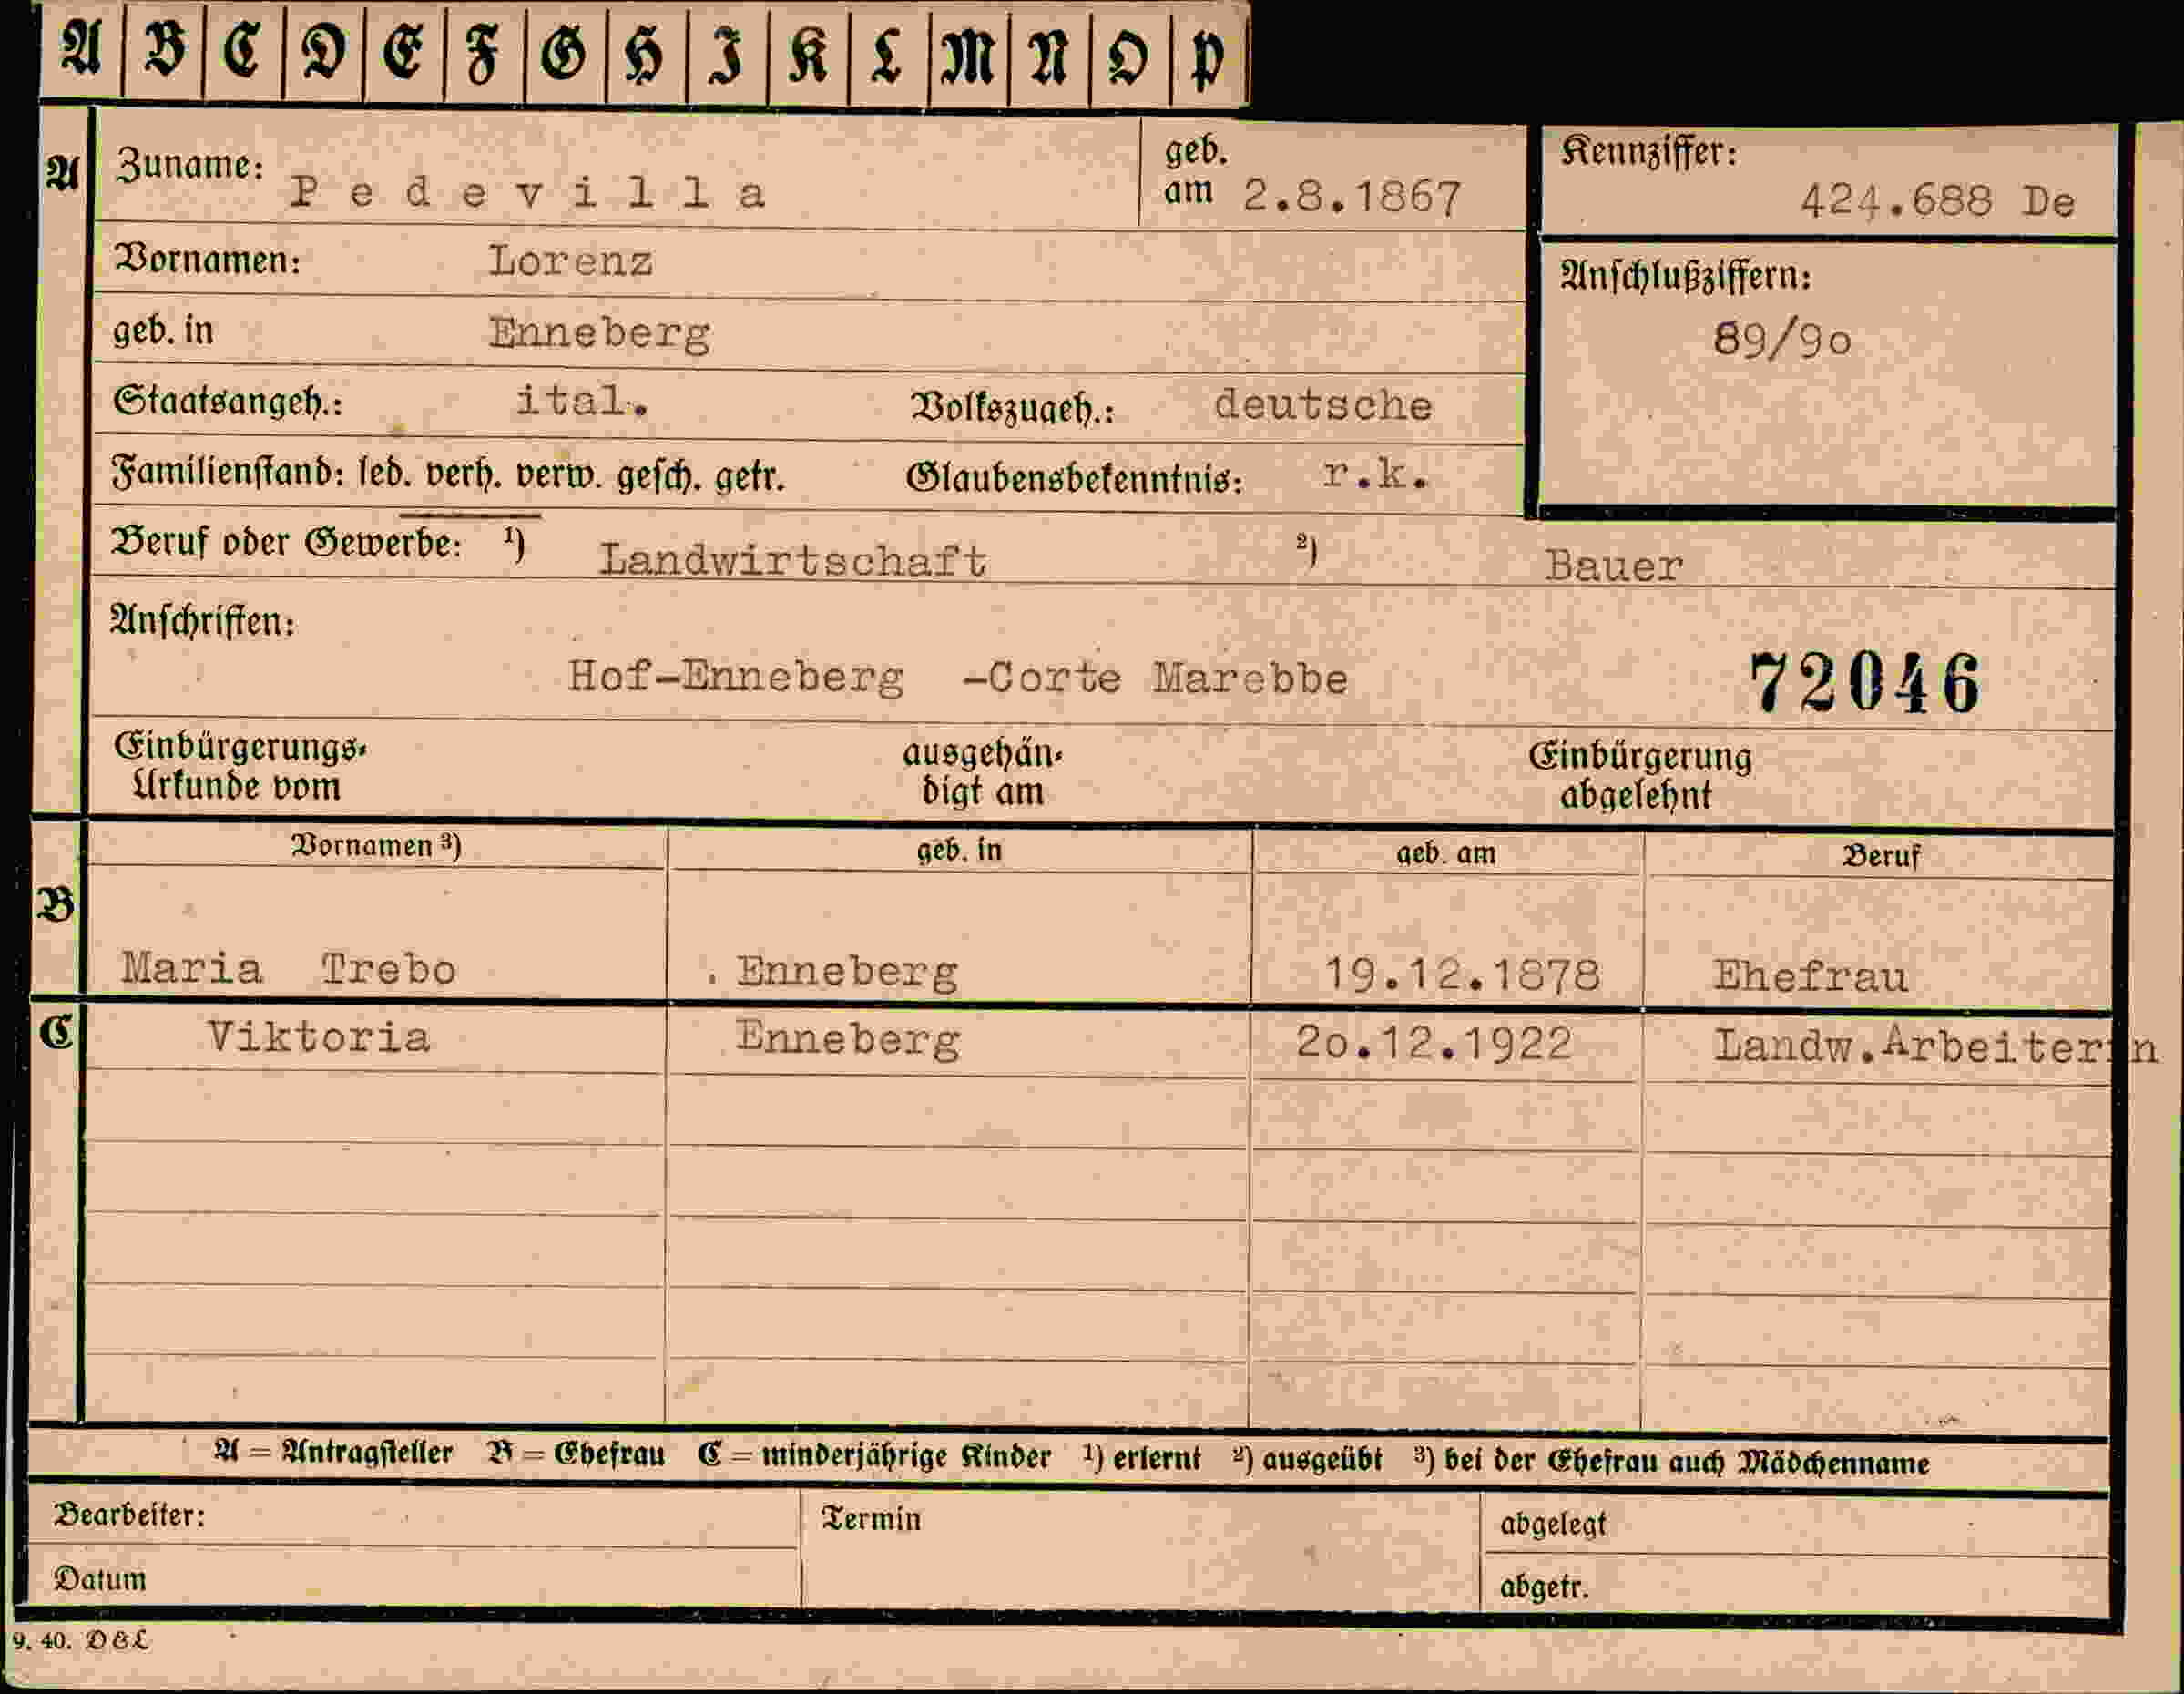 A B C D E F G H I K L M N O P
A Zuname: Pedevilla geb. am 2.8.1867 Kennziffer: 424.688 De
Vornamen: Lorenz
Anschlußziffern:
geb. in Enneberg 89/9o
Staatsangeh.: ital. Volkszugeh.: deutsche
Familienstand: led. verh. verw. gesch. getr. Glaubensbekenntnis: r.k.
Beruf oder Gewerbe: 1) Landwirtschaft 2) Bauer
Anschriften:
Hof-Enneberg -Corte Marebbe 72046
Einbürgerungs- ausgehän- Einbürgerung
Urkunde vom digt am abgelehnt
Vornamen 3) geb. in geb. am Beruf
B
Maria Trebo Enneberg 19.12.1878 Ehefrau
C Viktoria Enneberg 2o.12.1922 Landw.Arbeiterin
A = Antragsteller B = Ehefrau C = minderjährige Kinder 1) erlernt 2) ausgeübt 3) bei der Ehefrau auch Mädchenname
Bearbeiter: Termin abgelegt
Datum abgetr.
9. 40. D & L